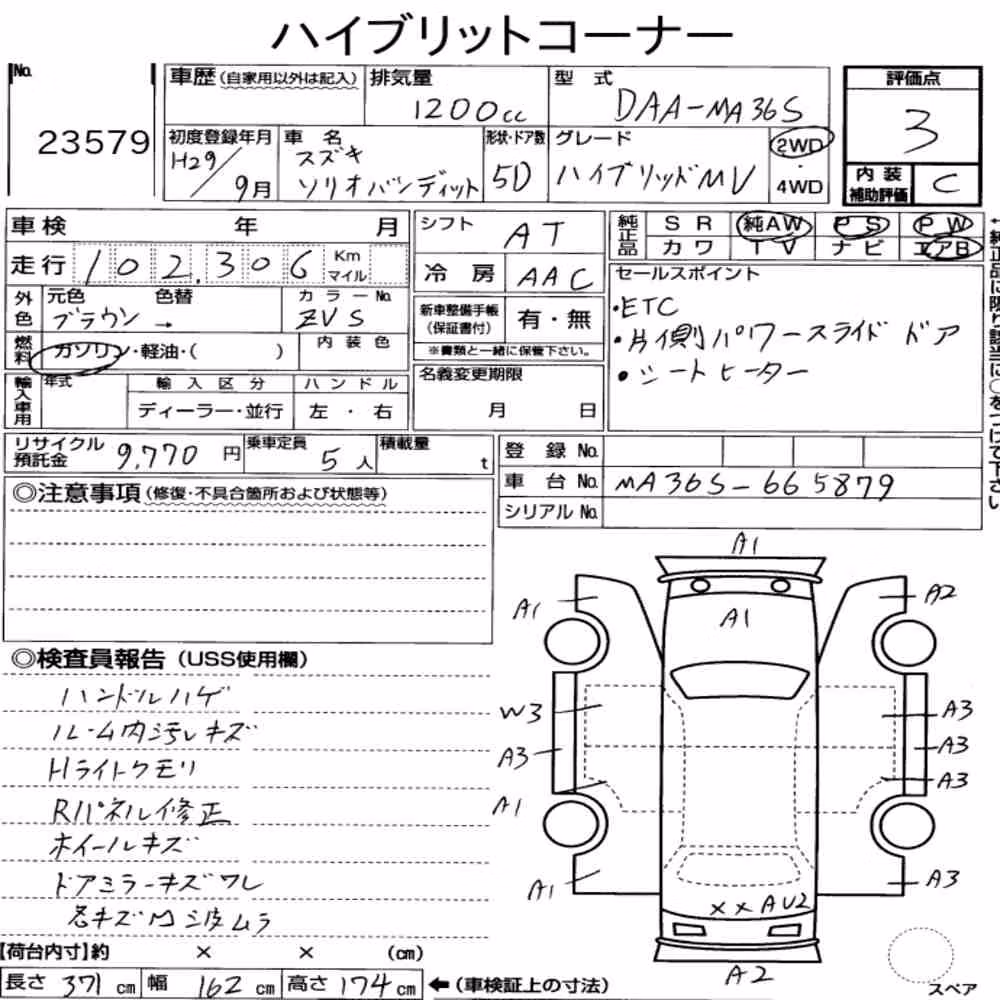 ハイブリットコーナー
No.
23579
車歴(自家用以外は記入)
排気量
1200cc
型式
DAA-MA36S
評価点
3
初度登録年月
H29/9月
車名
スズキ
ソリオバンディット
形状・ドア数
5D
グレード
ハイブリッドMV
2WD
・
4WD
内装
補助評価
C
車検 年 月
走行 102,306 Km
マイル
シフト
AT
冷房
AAC
純正品
SR 純AW PS PW
カワ TV ナビ エアB
←純正品に限り該当に○をつけて下さい
外色
元色 色替
ブラウン →
カラーNo.
ZVS
燃料
ガソリン・軽油・( )
内装色
新車整備手帳
(保証書付)
有・無
※書類と一緒に保管下さい。
セールスポイント
・ETC
・片側パワースライドドア
・シートヒーター
輸入車用
年式
輸入区分
ディーラー・並行
ハンドル
左・右
名義変更期限
月 日
リサイクル
預託金
9,770円
乗車定員
5人
積載量
t
登録No.
車台No.
MA36S-665879
シリアルNo.
◎注意事項(修復・不具合箇所および状態等)
◎検査員報告(USS使用欄)
ハンドルハゲ
ルーム内汚レキズ
Hライトクモリ
Rパネル修正
ホイールキズ
ドアミラーキズワレ
各キズ凹波ムラ
A1
A1
A2
A1
A1
W3
A3
A3
A3
A1
A3
A1
A3
XX AU2
A2
スペア
【荷台内寸】約 × × (cm)
長さ 371cm 幅 162cm 高さ 174cm ←(車検証上の寸法)